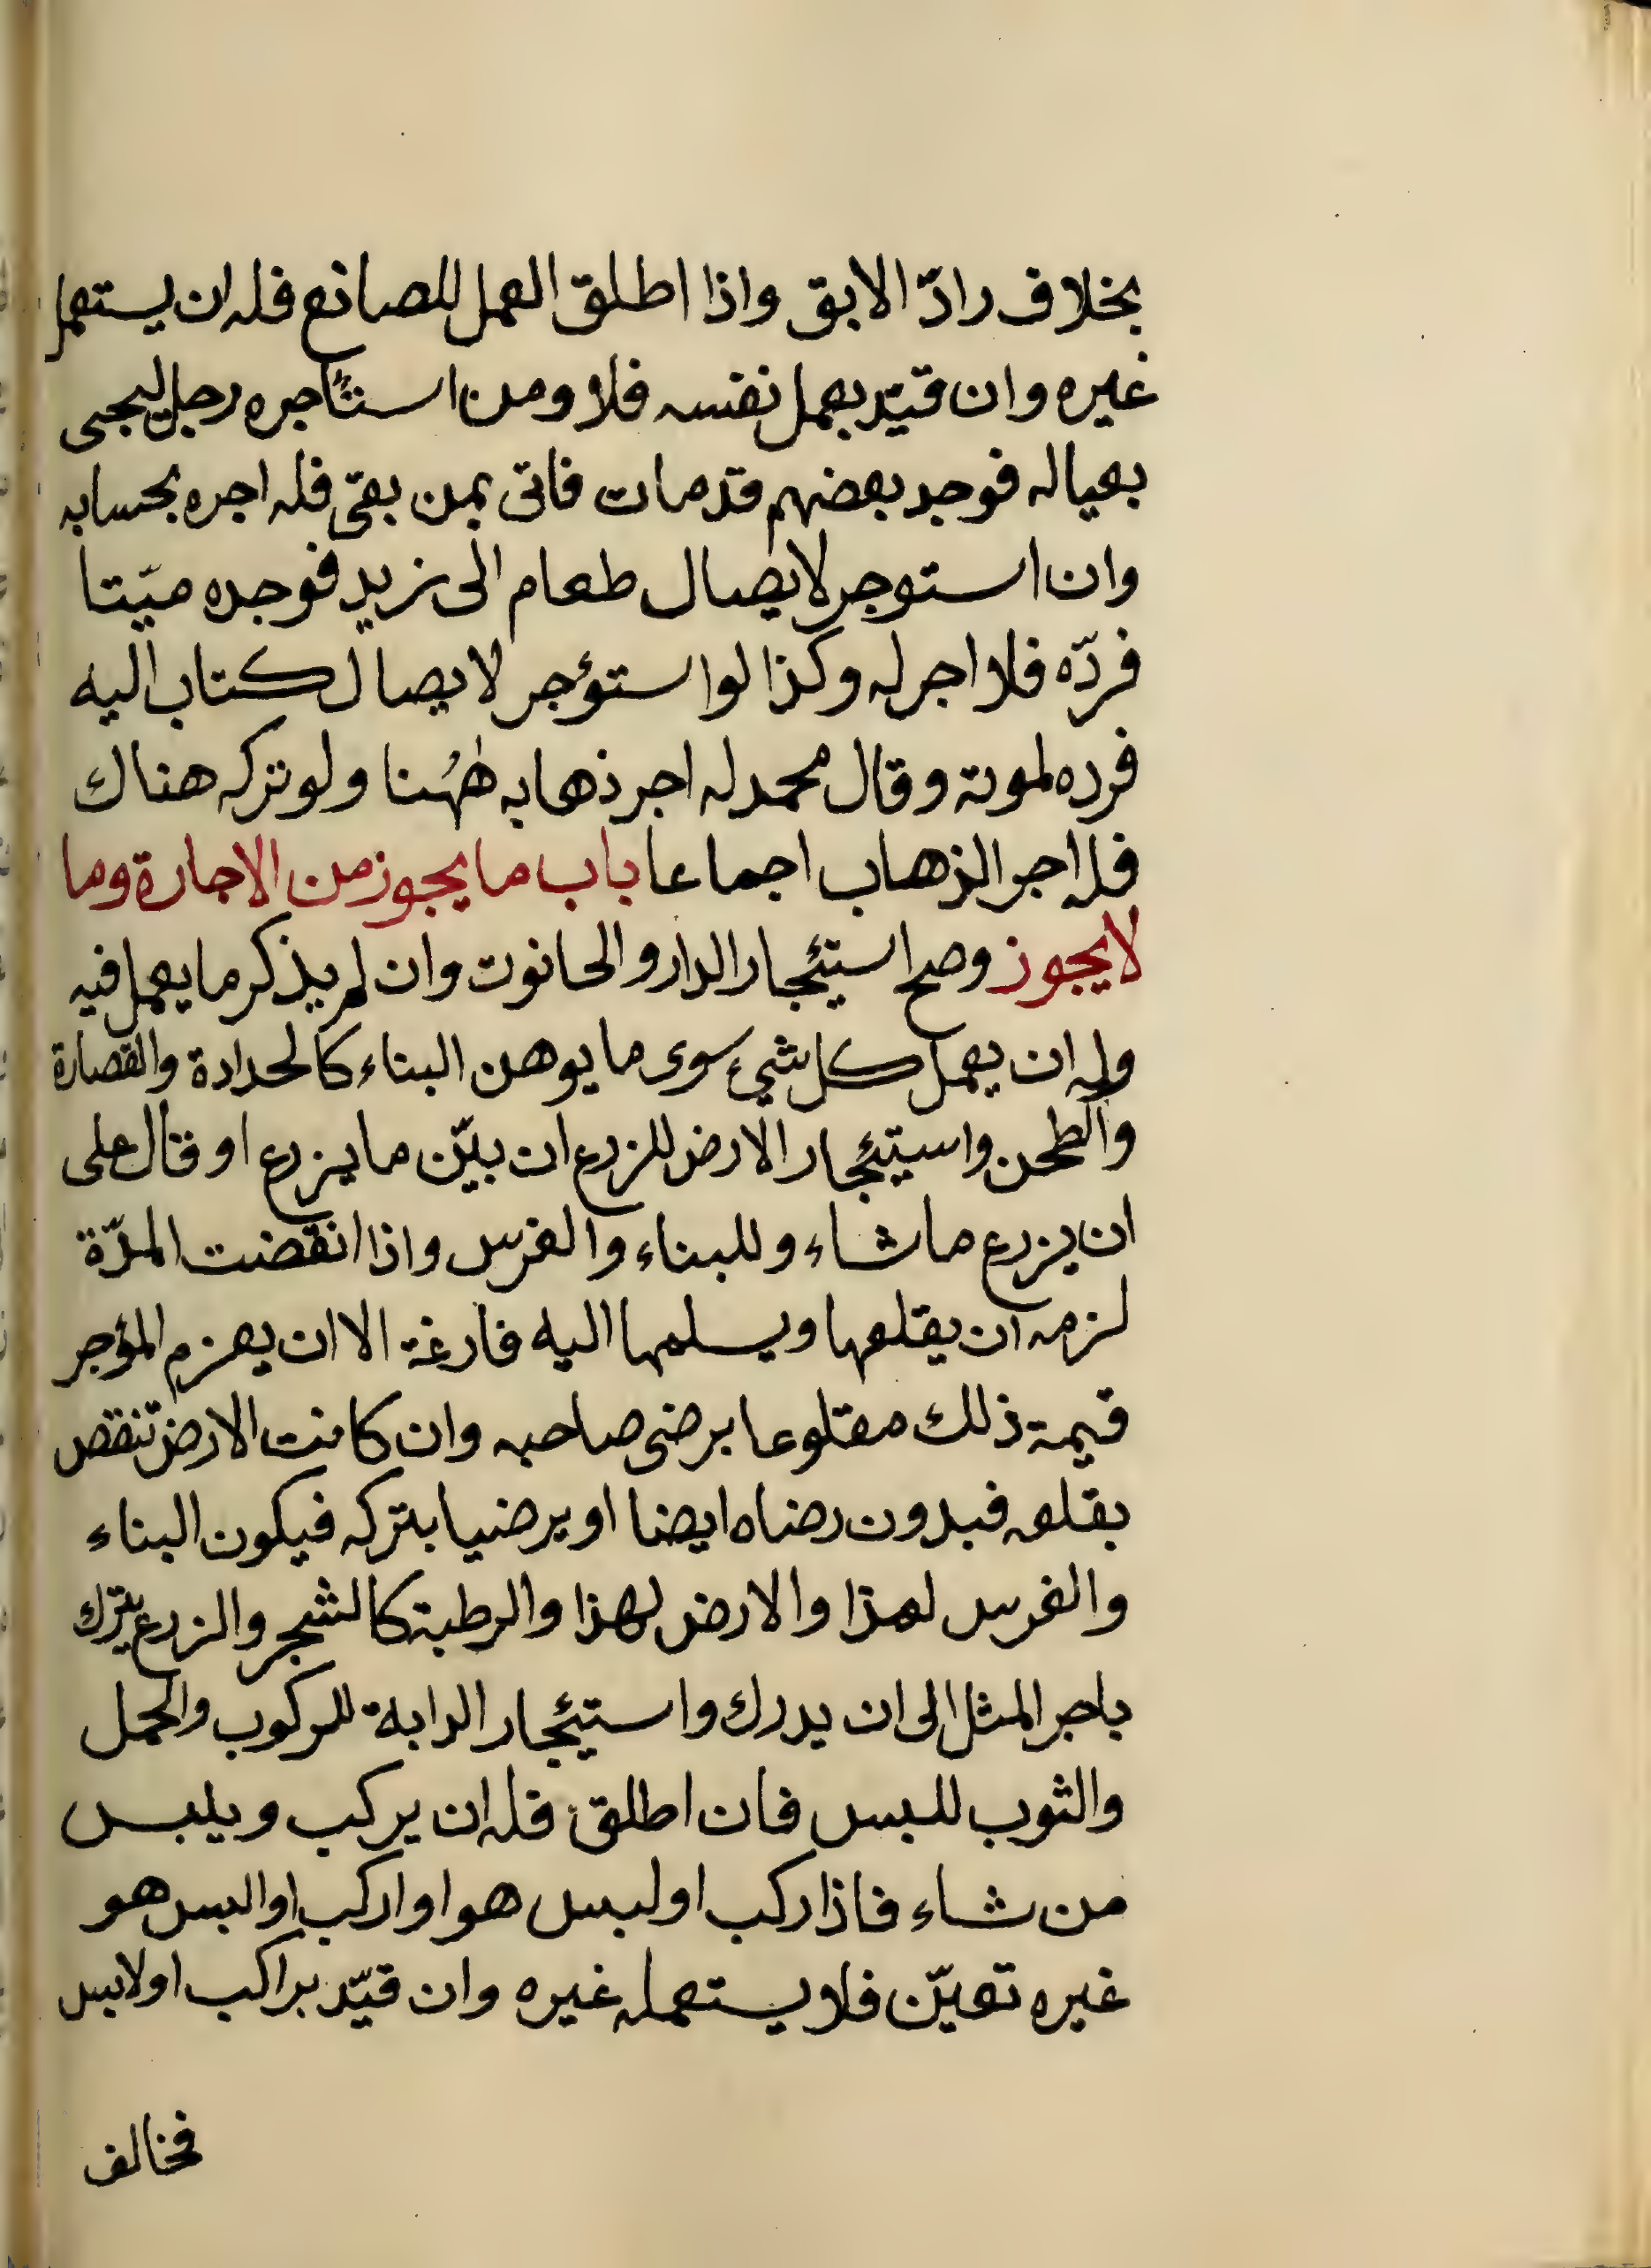 بخلاف رادّ الابق واذا اطلق العمل للصانع فله ان يستعمل
غيره وان قيّد بعمل نفسه فلا ومن استأجره رجل ليجى
بعياله فوجد بعضهم قد مات فاتى بمن بقى فله اجره بحسابه
وان استوجر لايصال طعام الى زيد فوجده ميّتا
فردّه فلا اجر له وكذا لو استؤجر لايصال كتاب اليه
فرده لموته وقال محمد له اجر ذهابه هٰهُنا ولو تركه هناك
فله اجر الذهاب اجماعا باب ما يجوز من الاجارة وما
لا يجوز وصح استئجار الدار والحانوت وان لم يذكر ما يعمل فيه
وله ان يعمل كل شيء سوى ما يوهن البناء كالحدادة والقصارة
والطحن واستئجار الارض للزرع ان بيّن ما يزرع او قال على
ان يزرع ما شاء وللبناء والغرس واذا انقضت المدّة
لزمه ان يقلعها ويسلمها اليه فارغة الا ان يغرم المؤجر
قيمة ذلك مقلوعا برضى صاحبه وان كانت الارض تنقص
بقلعه فبدون رضاه ايضا او يرضيا بتركه فيكون البناء
والغرس لهذا والارض لهذا والرطبة كالشجر والزرع يترك
باجر المثل الى ان يدرك واستئجار الدابة للركوب والحمل
والثوب للبس فان اطلق فله ان يركب ويلبس
من شاء فاذا ركب او لبس هو او اركب او البس هو
غيره تعيّن فلا يستعمله غيره وان قيّد براكب او لابس
فخالف